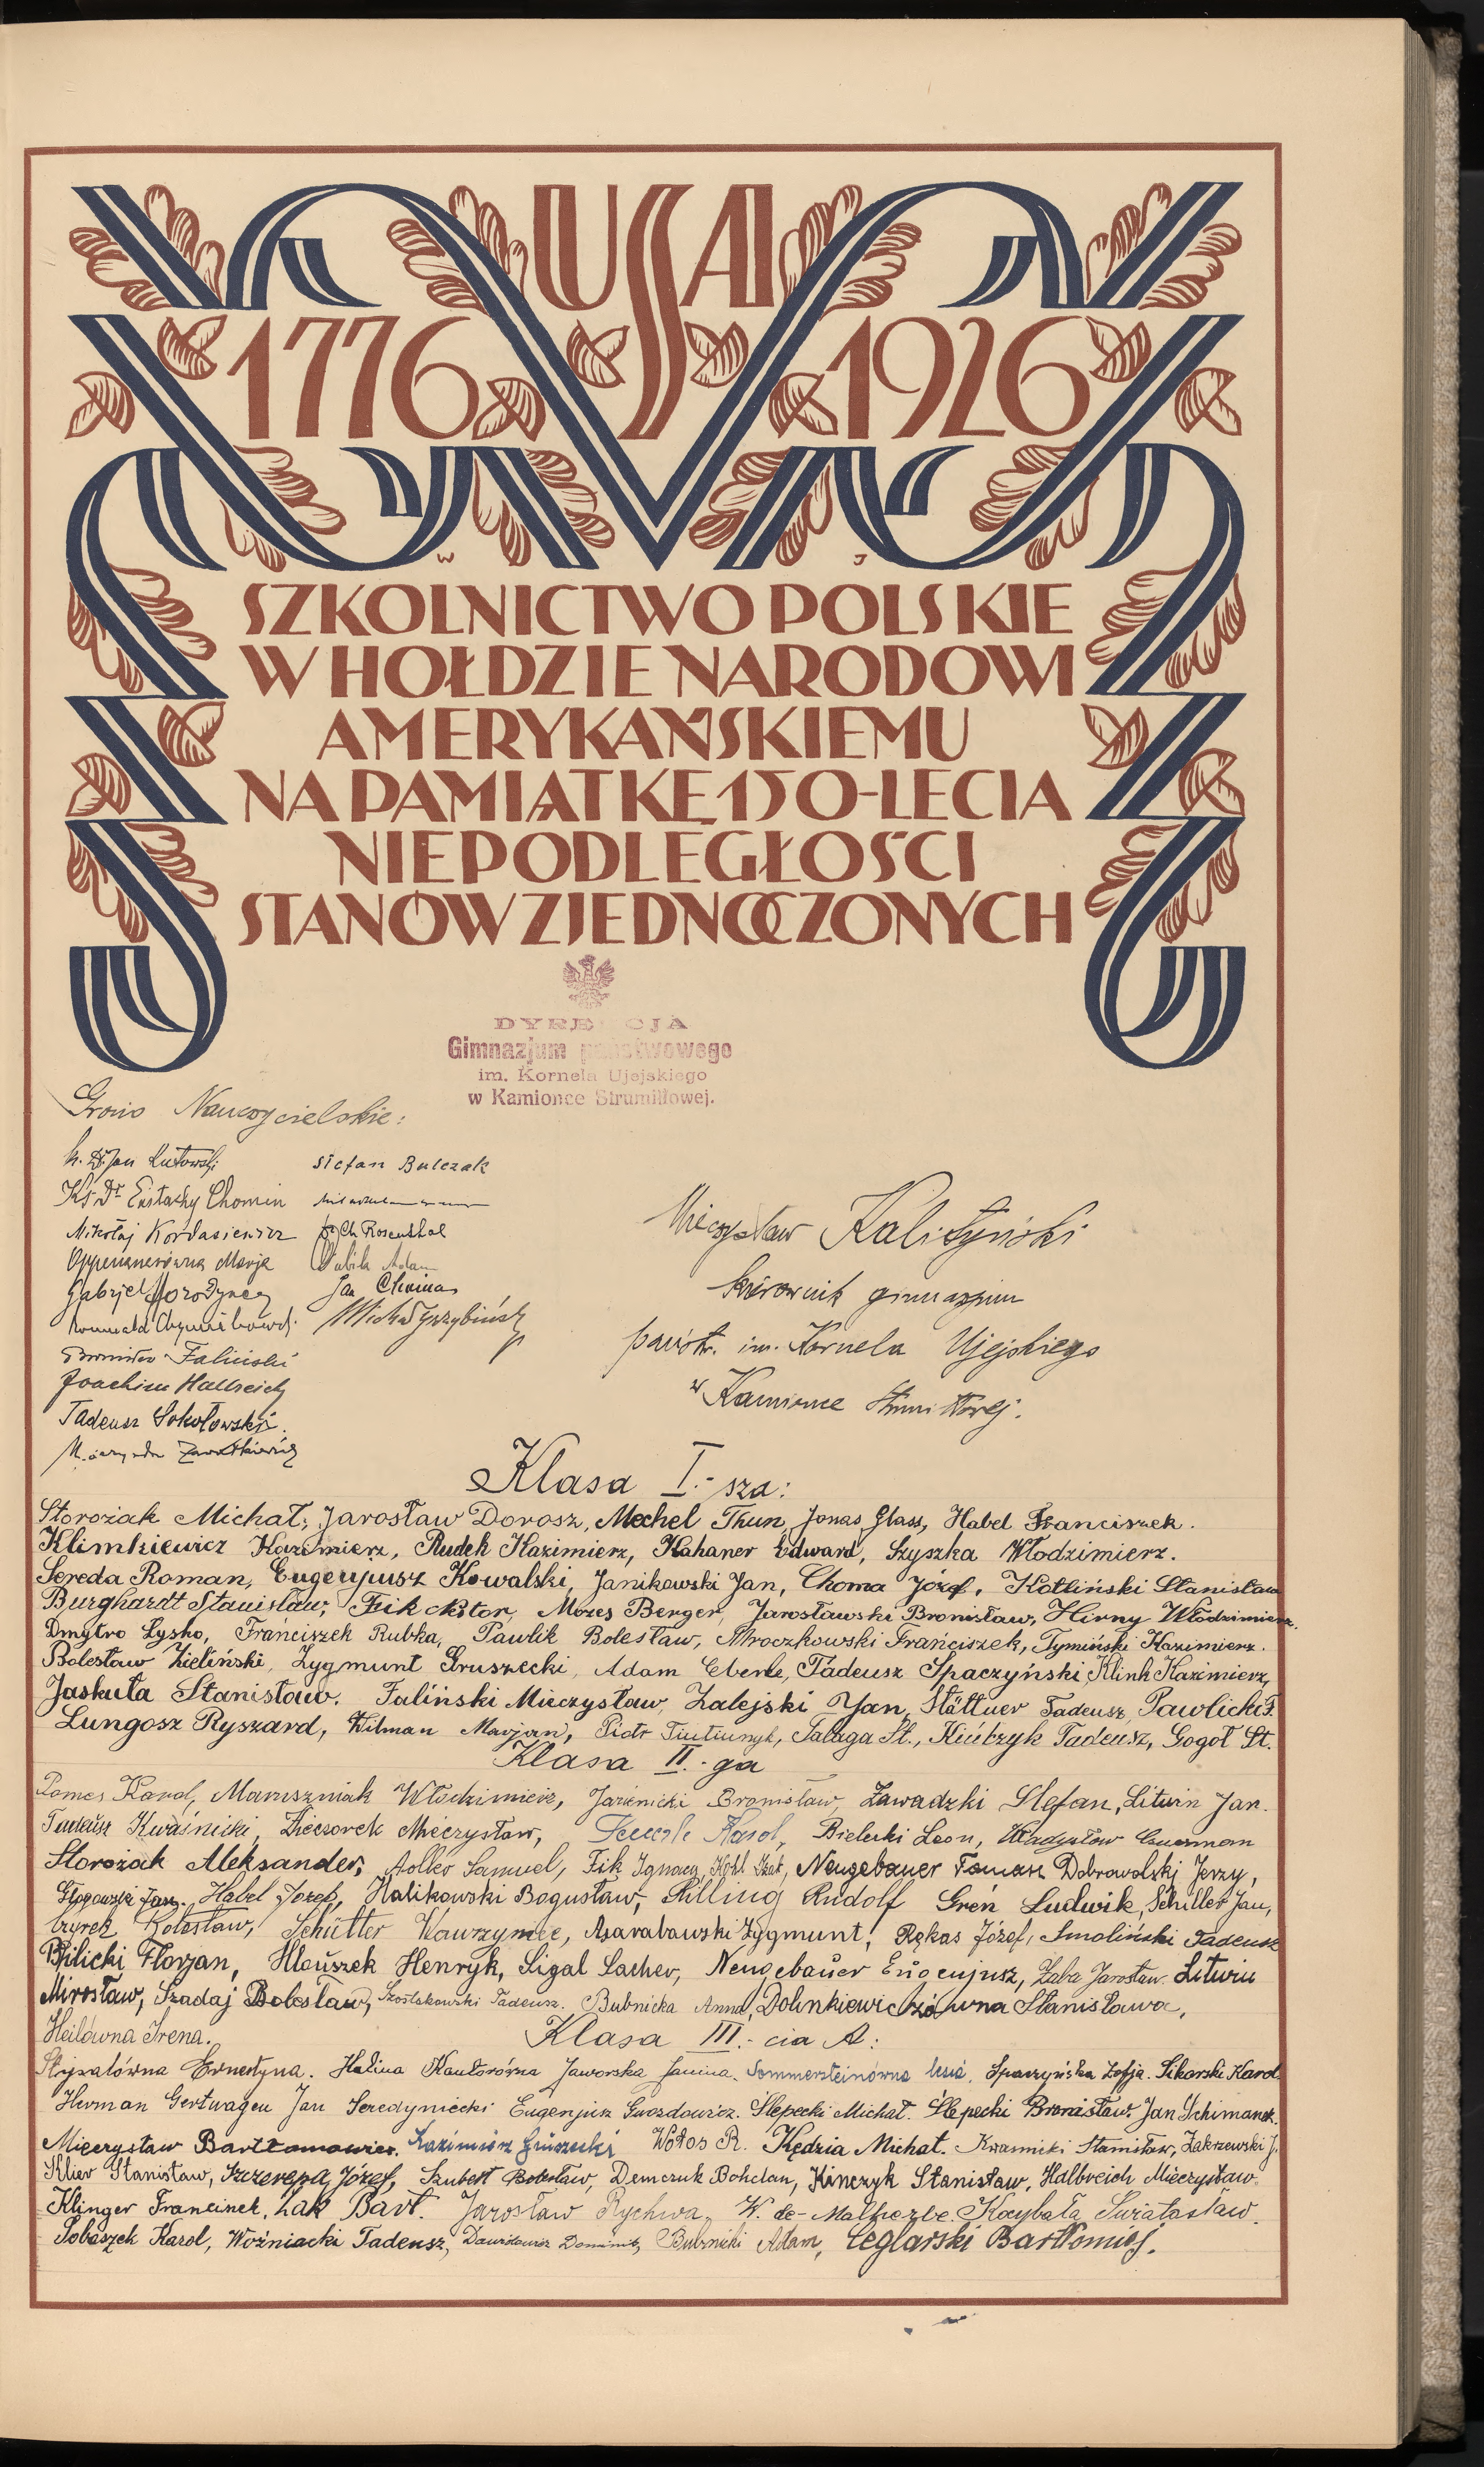 USA
1776 1926
W J
SZKOLNICTWO POLSKIE
W HOŁDZIE NARODOWI
AMERYKAŃSKIEMU
NA PAMIĄTKĘ 150-LECIA
NIEPODLEGŁOŚCI
STANÓW ZJEDNOCZONYCH
DYREKCJA
Gimnazjum państwowego
im. Kornela Ujejskiego
w Kamionce Strumiłłowej.
Grono Nauczycielskie:
Dr Jan Lutowski
Ks. Dr Eustachy Chomin
Mikołaj Kordasiewicz
Marja
Gabrjel Horodyncej
Romuald
Faliński
Joachim Hallreich
Tadeusz Sokołowski.
Stefan Bulczak
Rosenthal
Adam
Jan
Mieczysław Kalityński
kierownik gimnazjum
państw. im. Kornela Ujejskiego
w Kamionce Strumiłłowej.
Klasa I.- sza:
Storożak Michał, Jarosław Dorosz, Mechel Thun, Jonas Glass, Habel Franciszek.
Klimkiewicz Kazimierz, Rudek Kazimierz, Kahaner Edward, Szyszka Włodzimierz.
Sereda Roman, Eugenjusz Kowalski, Janikowski Jan, Choma Józef, Kotliński Stanisław
Burghardt Stanisław, Fik Wiktor, Mozes Berger, Jarosławski Bronisław, Hirny Włodzimierz.
Dmytro Łysko, Franciszek Rubka, Pawlik Bolesław, Mroczkowski Franciszek, Tymiński Kazimierz.
Bolesław Zieliński, Zygmunt Gruszecki, Adam Eberle, Tadeusz Spaczyński, Klink Kazimierz,
Jaskuła Stanisław. Faliński Mieczysław, Zalejski Jan, Stättner Tadeusz, Pawlicki F.
Lungosz Ryszard, Wilman Marjan, Piotr Tiutiunyk, Talaga St., Kiełtzyk Tadeusz, Gogol St.
Klasa II.- ga
Pomes Karol, Maruszniak Włodzimierz, Jarienicki Bronisław, Zawadzki Stefan, Litwin Jan.
Tadeusz Kwaśnicki, Wieczorek Mieczysław, Karol, Bielecki Leon, Władysław
Storożak Aleksander, Samuel, Fik Ignacy, Kohl Izak, Neugebauer Tomasz, Dobrowolski Jerzy,
Głogowski Jan. Habel Józef, Halikowski Bogusław, Schilling Rudolf Greń Ludwik, Schiller Jan,
Czyrek Bolesław, Schütter Wawrzyniec, Asarabowski Zygmunt, Rękas Józef, Smoliński Tadeusz
Bilicki Florjan, Hlouszek Henryk, Sigal Sacher, Neugebauer Eugenjusz, Żaba Jarosław. Litwin
Mirosław, Szadaj Bolesław, Szostakowski Tadeusz. Bubnicka Anna, Dolinkiewiczówna Stanisława,
Heilówna Irena.
Klasa III.- cia A:
Strysalówna Ernestyna. Halina Kantorówna Jaworska Janina. Sommersteinówna Lusia. Spaczyńska Zofja. Sikorski Karol.
Herman Gertwagen Jan Seredyniecki Eugenjusz Gwozdowicz. Ślepecki Michał. Ślepecki Bronisław. Jan Schimanek.
Mieczysław Bartłomowicz. Kazimierz Gruszecki Wołos R. Kędzia Michał. Kwasnicki Stanisław, Zakrzewski J.
Klier Stanisław, Szczerepa Józef, Szubert Bolesław, Demczuk Bohdan, Kinczyk Stanisław, Halbreich Mieczysław.
Klinger Francinek, Żak Bart. Jarosław Rychwa, W. de-Malherbe. Kocybała Światosław.
Sobaszek Karol, Woźniacki Tadeusz, Dawidowicz Dominik, Bubnicki Adam, Ceglarski Bartłomiej.